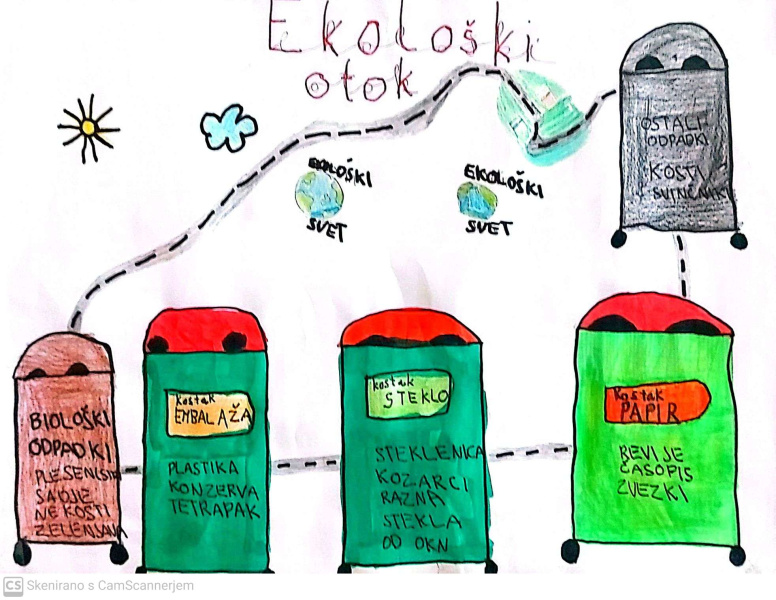 Ekološki
otok
EKOLOŠKI
SVET
EKOLOŠKI
SVET
OSTALI
ODPADKI
KOSTI
SVINČNIKI
BIOLOŠKI
ODPADKI
SADJE
NE KOSTI
ZELENJAVA
kostak
EMBALAŽA
PLASTIKA
KONZERVA
TETRAPAK
kostak
STEKLO
STEKLENICA
KOZARCI
RAZNA
STEKLA
OD OKN
Kostak
PAPIR
REVIJE
ČASOPIS
ZVEZKI
CS Skenirano s CamScannerjem